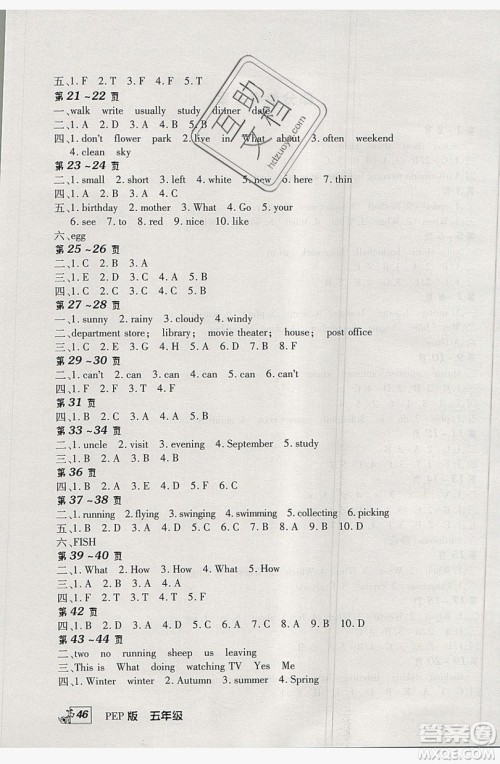 五、1. F 2. T 3. F 4. F 5. T
第 21~22 页
一、walk write usually study dinner date
二、1. A 2. D 3. C 4. B 5. D
四、1. don't flower park 2. live in What about 3. often weekend
4. clean sky
第 23~24 页
三、1. small 2. short 3. left 4. white 5. new 6. here 7. thin
五、1. birthday 2. mother 3. What 4. Go 5. your
6. see 7. to 8. red 9. nice 10. like
六、egg
第 25~26 页
二、1. C 2. B 3. A
三、1. E 2. D 3. C 4. A 5. B
四、1. C 2. D 3. C 4. A 5. B
第 27~28 页
一、1. sunny 2. rainy 3. cloudy 4. windy
二、department store; library; movie theater; house; post office
三、1. C 2. D 3. E 4. A 5. B 6. F
第 29~30 页
二、1. can't 2. can 3. can 4. can 5. can't
四、1. F 2. T 3. T 4. F
第 31 页
四、1. B 2. D 3. A 4. C
第 33~34 页
二、1. uncle 2. visit 3. evening 4. September 5. study
第 36 页
四、1. B 2. D 3. C 4. A
第 37~38 页
二、1. running 2. flying 3. swing 4. swimming 5. collecting 6. picking
五、1. D 2. A 3. B 4. B 5. C 6. C 7. B 8. B 9. B 10. D
六、FISH
第 39~40 页
二、1. What 2. How 3. How 4. What 5. How
三、1. C 2. D 3. A 4. E 5. B
四、1. F 2. T 3. F 4. F 5. T
第 42 页
四、1. D 2. A 3. B 4. B 5. C 6. C 7. B 8. B 9. B 10. D
第 43~44 页
二、two no running sheep us leaving
三、This is What doing watching TV Yes Me
四、1. Winter winter 2. Autumn 3. summer 4. Spring
46 PEP 版 五年级
互助文档
hdzuoye.com
作业帮答案
MXQE.COM